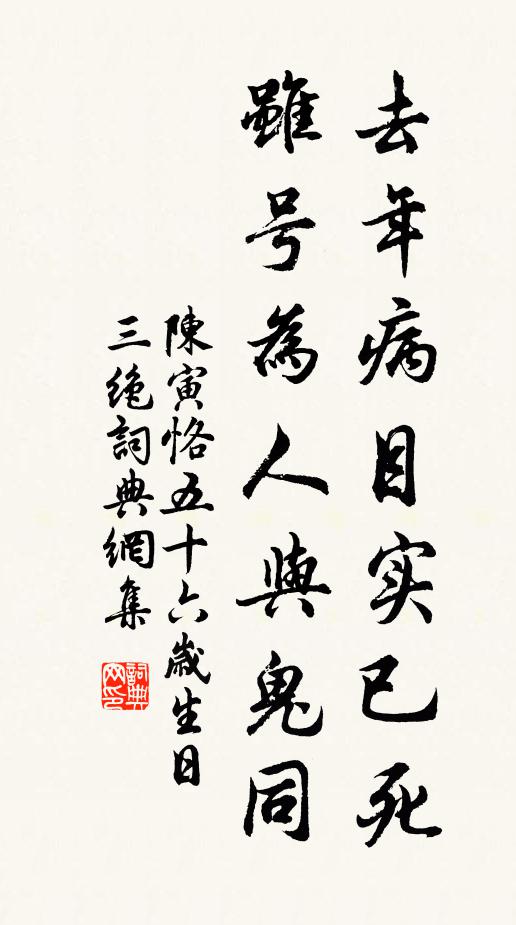 去年病目实已死
雖号為人與鬼同
陳寅恪五十六歲生日
三绝詞典網集
詞典
网印